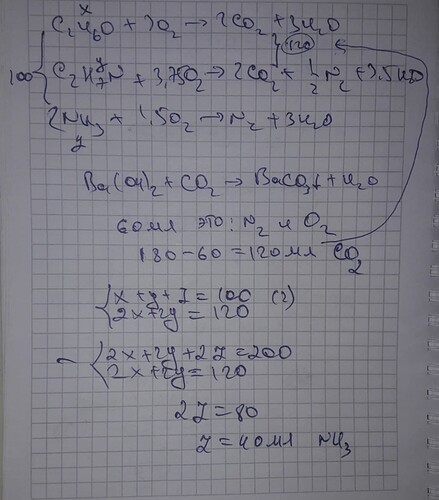 x
C₂H₆O + 3O₂ → 2CO₂ + 3H₂O
y 120
100 { C₂H₇N + 3,75O₂ → 2CO₂ + 1/2 N₂ + 3.5H₂O
2NH₃ + 1.5O₂ → N₂ + 3H₂O
y
Ba(OH)₂ + CO₂ → BaCO₃↓ + H₂O
60 мл это: N₂ и O₂
180 - 60 = 120 мл CO₂
{ x + y + z = 100 (2)
2x + 2y = 120
- { 2x + 2y + 2z = 200
2x + 2y = 120
2z = 80
z = 40 мл NH₃